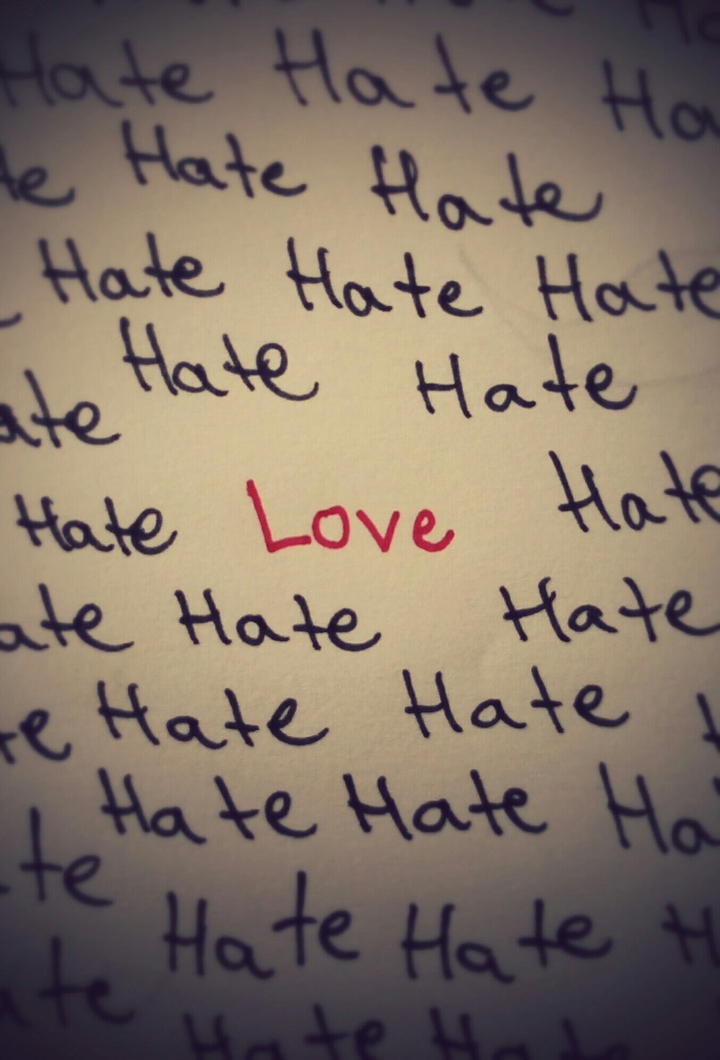 Hate Hate Ha
te Hate Hate
Hate Hate Hate
ate Hate Hate
Hate Love Hate
ate Hate Hate
te Hate Hate
Hate Hate Ha
te Hate Hate H
ate Hate Hate